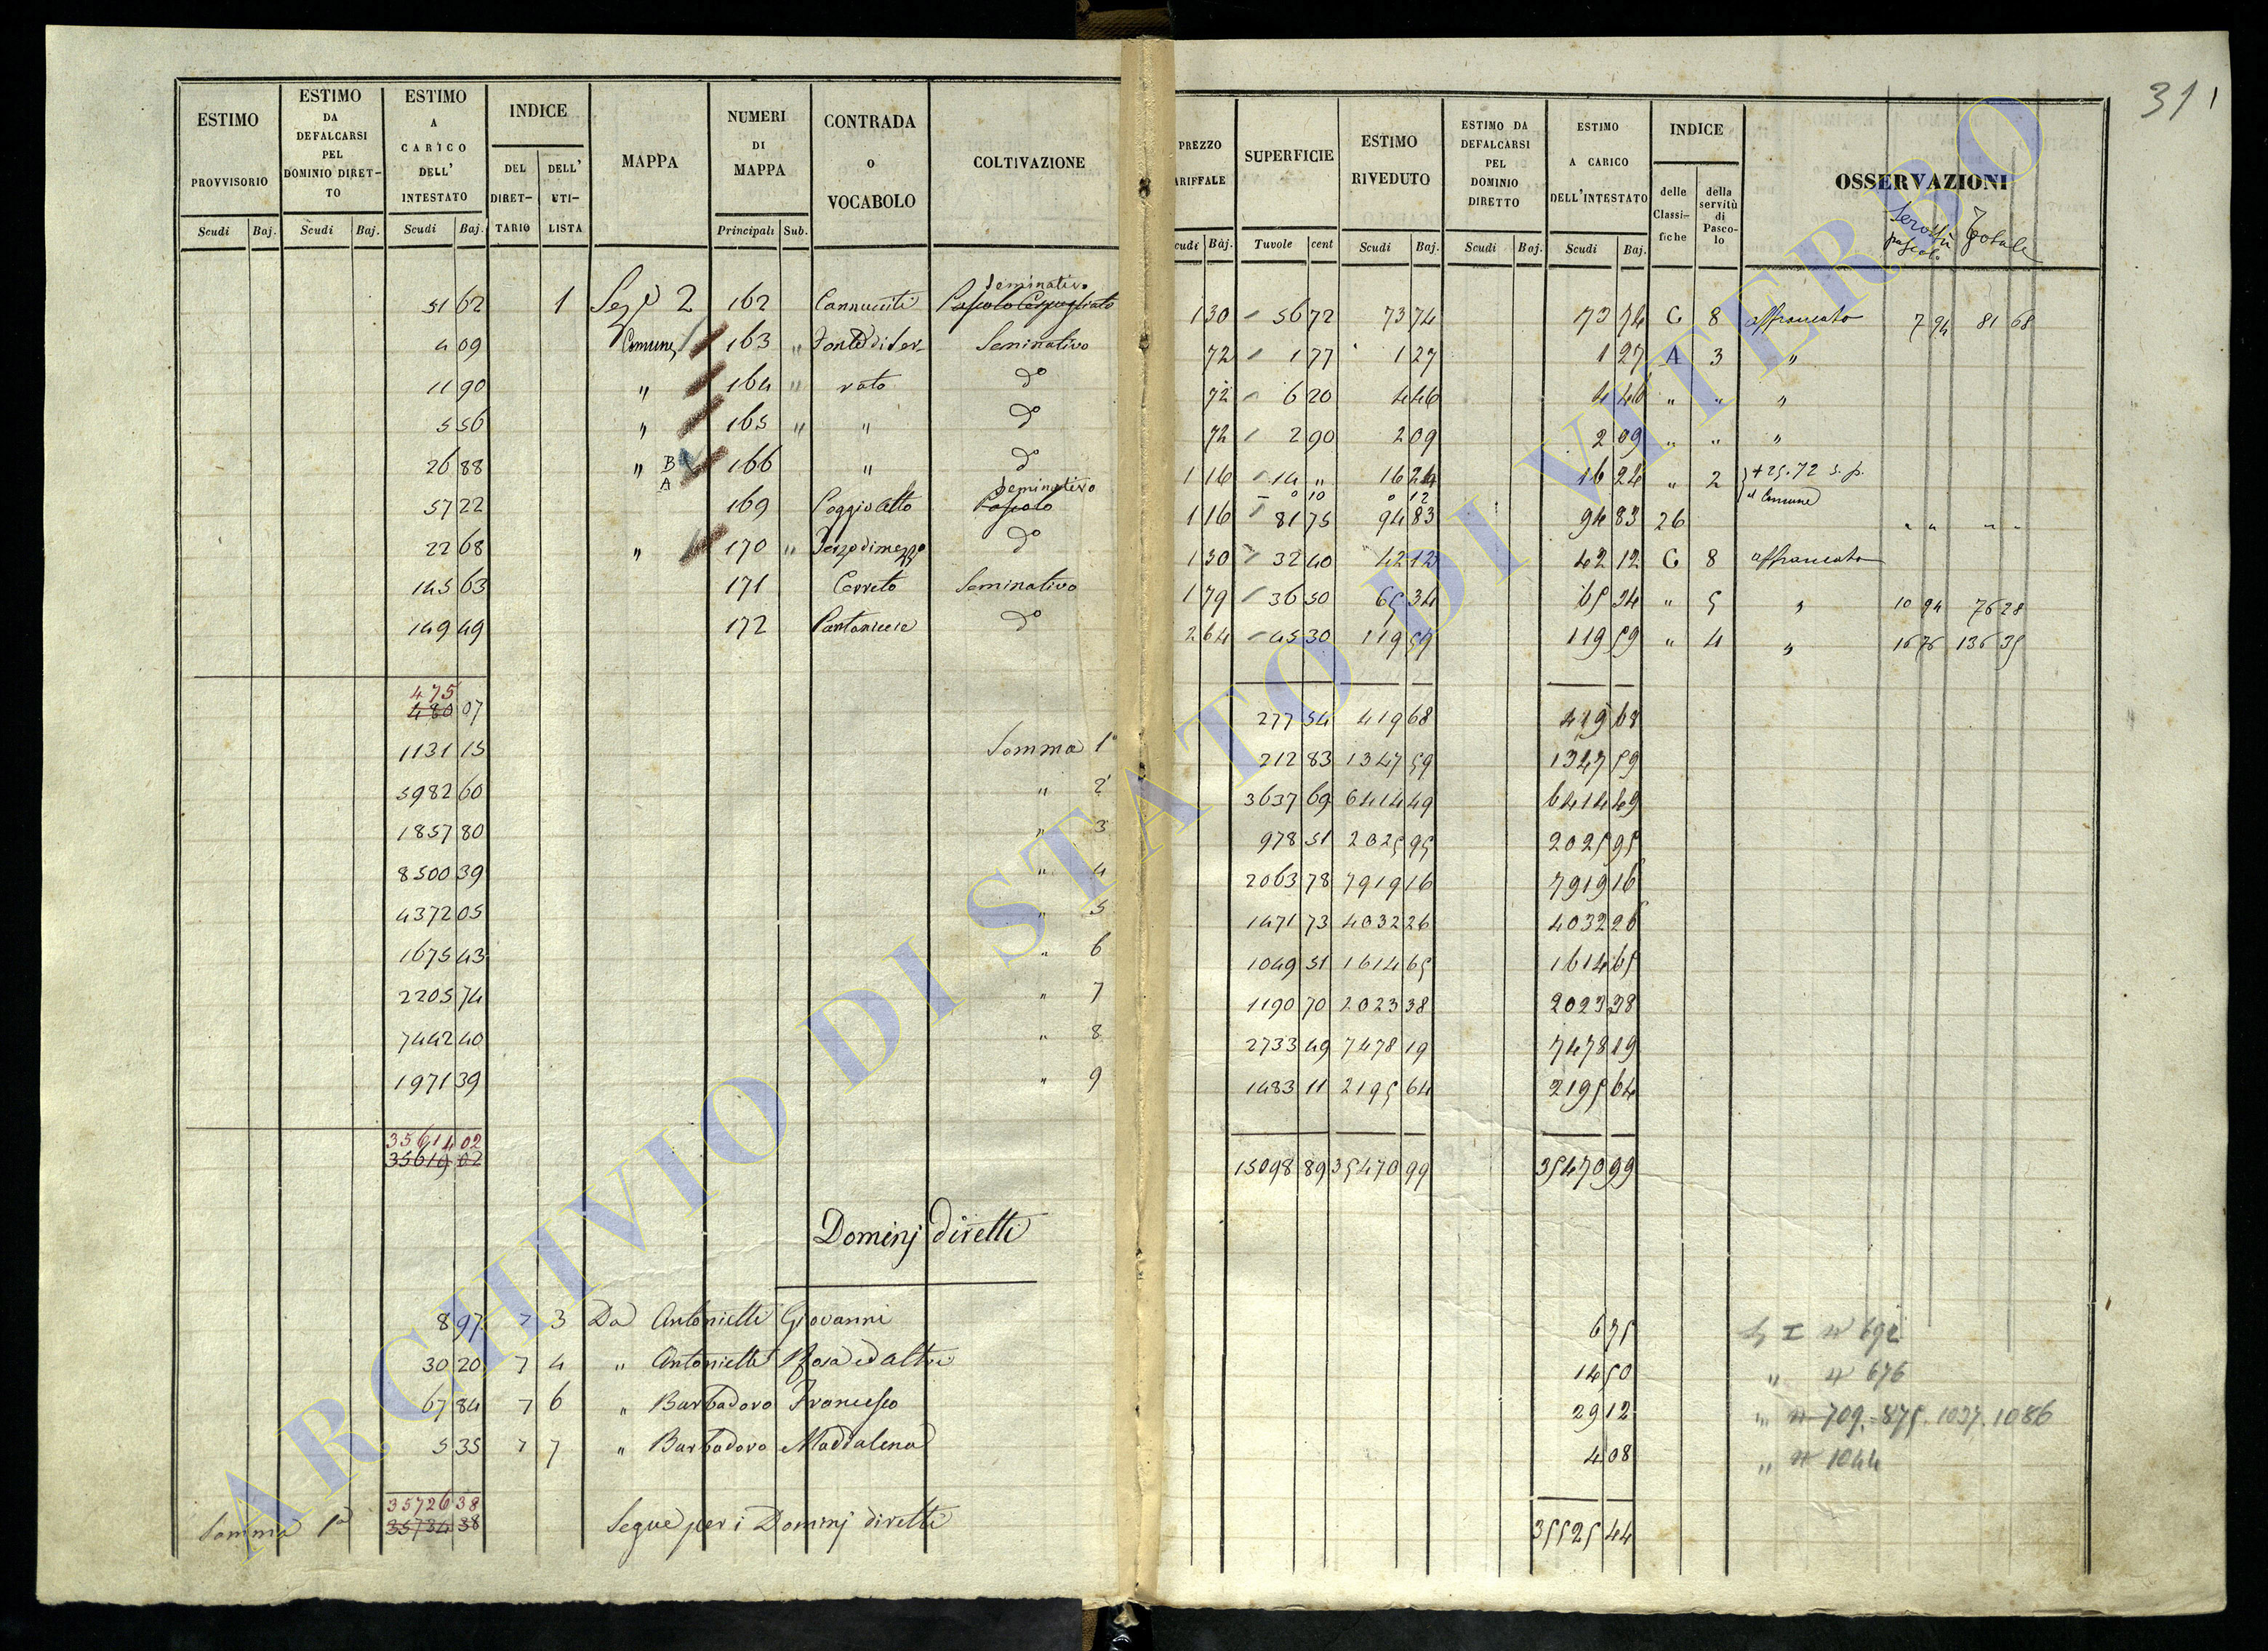 311
ESTIMO PROVVISORIO
ESTIMO DA DEFALCARSI PEL DOMINIO DIRETTO
ESTIMO A CARICO DELL' INTESTATO
INDICE
DEL DIRETTARIO
DELL' UTILISTA
MAPPA
NUMERI DI MAPPA
CONTRADA o VOCABOLO
COLTIVAZIONE
Scudi Baj. Scudi Baj. Scudi Baj. Principali Sub.
PREZZO TARIFFALE
SUPERFICIE
ESTIMO RIVEDUTO
ESTIMO DA DEFALCARSI PEL DOMINIO DIRETTO
ESTIMO A CARICO DELL'INTESTATO
INDICE
delle Classifiche
della servitù di Pascolo
OSSERVAZIONI
Servitù pascolo Totale
Scudi Baj. Tavole cent Scudi Baj. Scudi Baj. Scudi Baj.
51 62 1 Sez.e 2 162 Cannucciti Seminativo Pascolo Cespugliato 1 30 56 72 73 74 73 74 C 8 affrancato 7 94 81 68
4 09 Comune 163 " Fonte di Ser- Seminativo 72 1 77 1 27 1 27 A 3 "
11 90 " 164 " vato do 72 6 20 4 46 4 46 " " "
5 56 " 165 " " do 72 2 90 2 09 2 09 " " "
26 88 " B A 166 " do 1 16 14 " 16 24 16 24 " 2 + 25.72 s. p. al Comune
0 10 0 12
57 22 169 Poggio alto Seminativo Pascolo 1 16 81 75 94 83 94 83 26 " " " "
22 68 " 170 " Terzo di mezzo do 1 30 32 40 42 12 42 12 C 8 affrancato
145 63 171 Cerreto Seminativo 1 79 36 50 65 34 65 34 " 5 " 10 94 76 28
149 49 172 Pantaniccie do 2 64 45 30 119 59 119 59 " 4 " 16 76 136 35
475
480 07 277 54 419 68 419 68
1131 15 Somma 1a 212 83 1347 59 1347 59
5982 60 " 2 3637 69 6414 49 6414 49
1857 80 " 3 978 51 2025 95 2025 95
8500 39 " 4 2063 78 7919 16 7919 16
4372 05 " 5 1471 73 4032 26 4032 26
1675 43 " 6 1049 51 1614 65 1614 65
2205 74 " 7 1190 70 2023 38 2023 38
7442 40 " 8 2733 49 7478 19 7478 19
1971 39 " 9 1483 11 2195 64 2195 64
35614 02
35619 02 15098 89 35470 99 35470 99
Dominj diretti
8 97 7 3 Da Antonietti Giovanni 6 75 Sz I n 692
30 20 7 4 " Antonietti Rosa ed altri 14 50 " n 676
67 84 7 6 " Barbadoro Francesco 29 12 " n 709. 875. 1037. 1086
5 35 7 7 " Barbadoro Maddalena 4 08 " n 1044
35726 38
Somma 1a 35734 38 Segue per i Dominj diretti 35525 44
ARCHIVIO DI STATO DI VITERBO